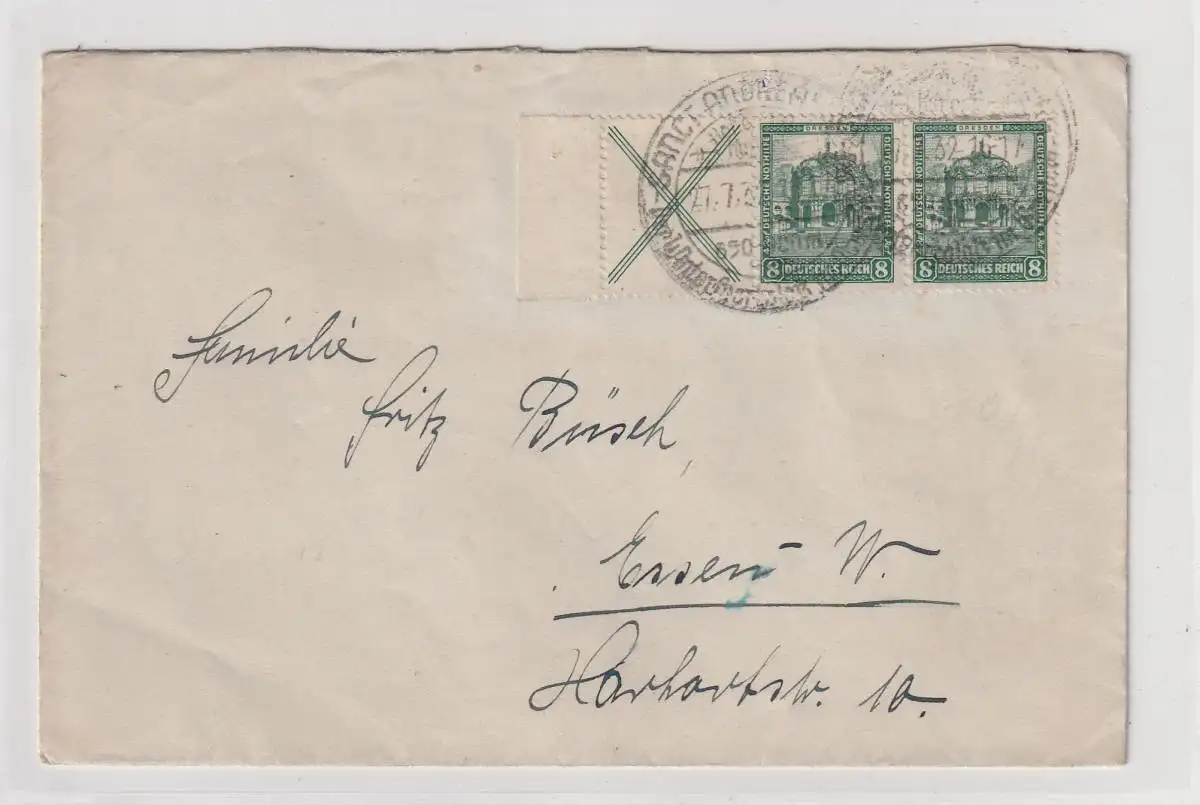 SANCT ANDREA
27.7.3
32.16-17
DRESDEN
DEUTSCHE NOTHILFE
8 DEUTSCHES REICH 8
DRESDEN
DEUTSCHE NOTHILFE
8 DEUTSCHES REICH 8
Familie
Fritz Büsch,
Essen-W.
Harkortstr. 10.